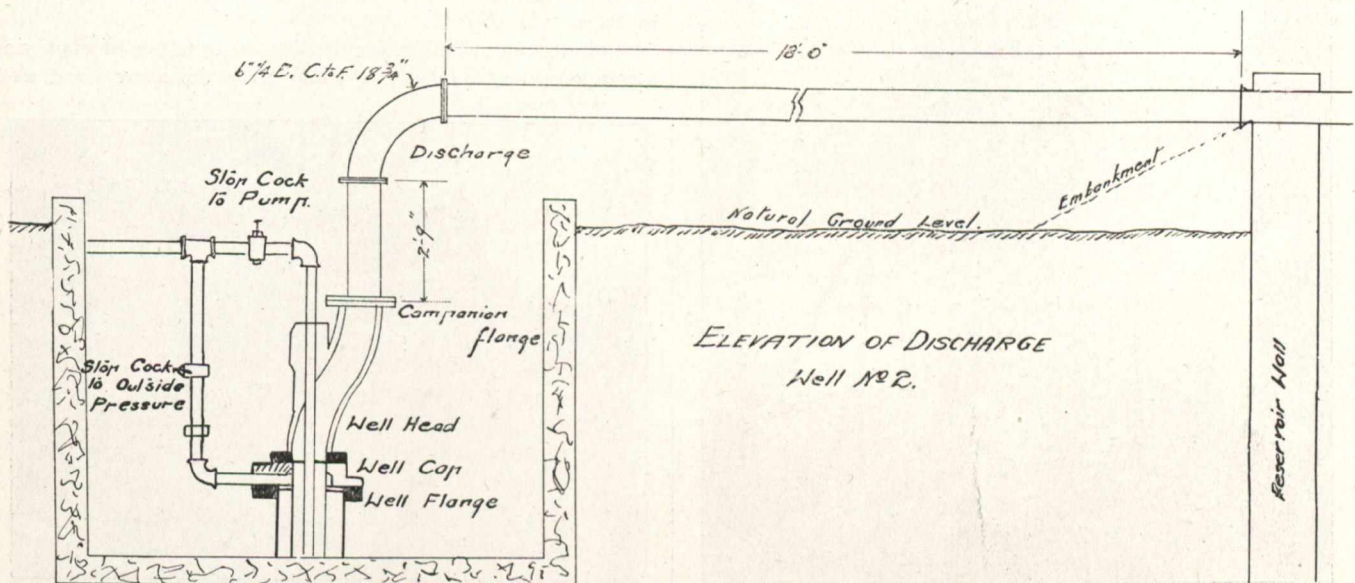 18'-0"
6" 1/4 E. C. to F. 18 3/4"
Discharge
Stop Cock
To Pump.
2'-9"
Embankment
Natural Ground Level.
Companion
flange
Stop Cock
To Outside
Pressure
ELEVATION OF DISCHARGE
Well No 2.
Well Head
Well Cap
Well Flange
Reservoir Wall